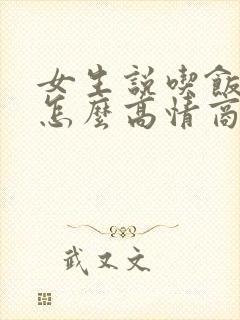 女生說喫飯
怎麼高情商
武又文